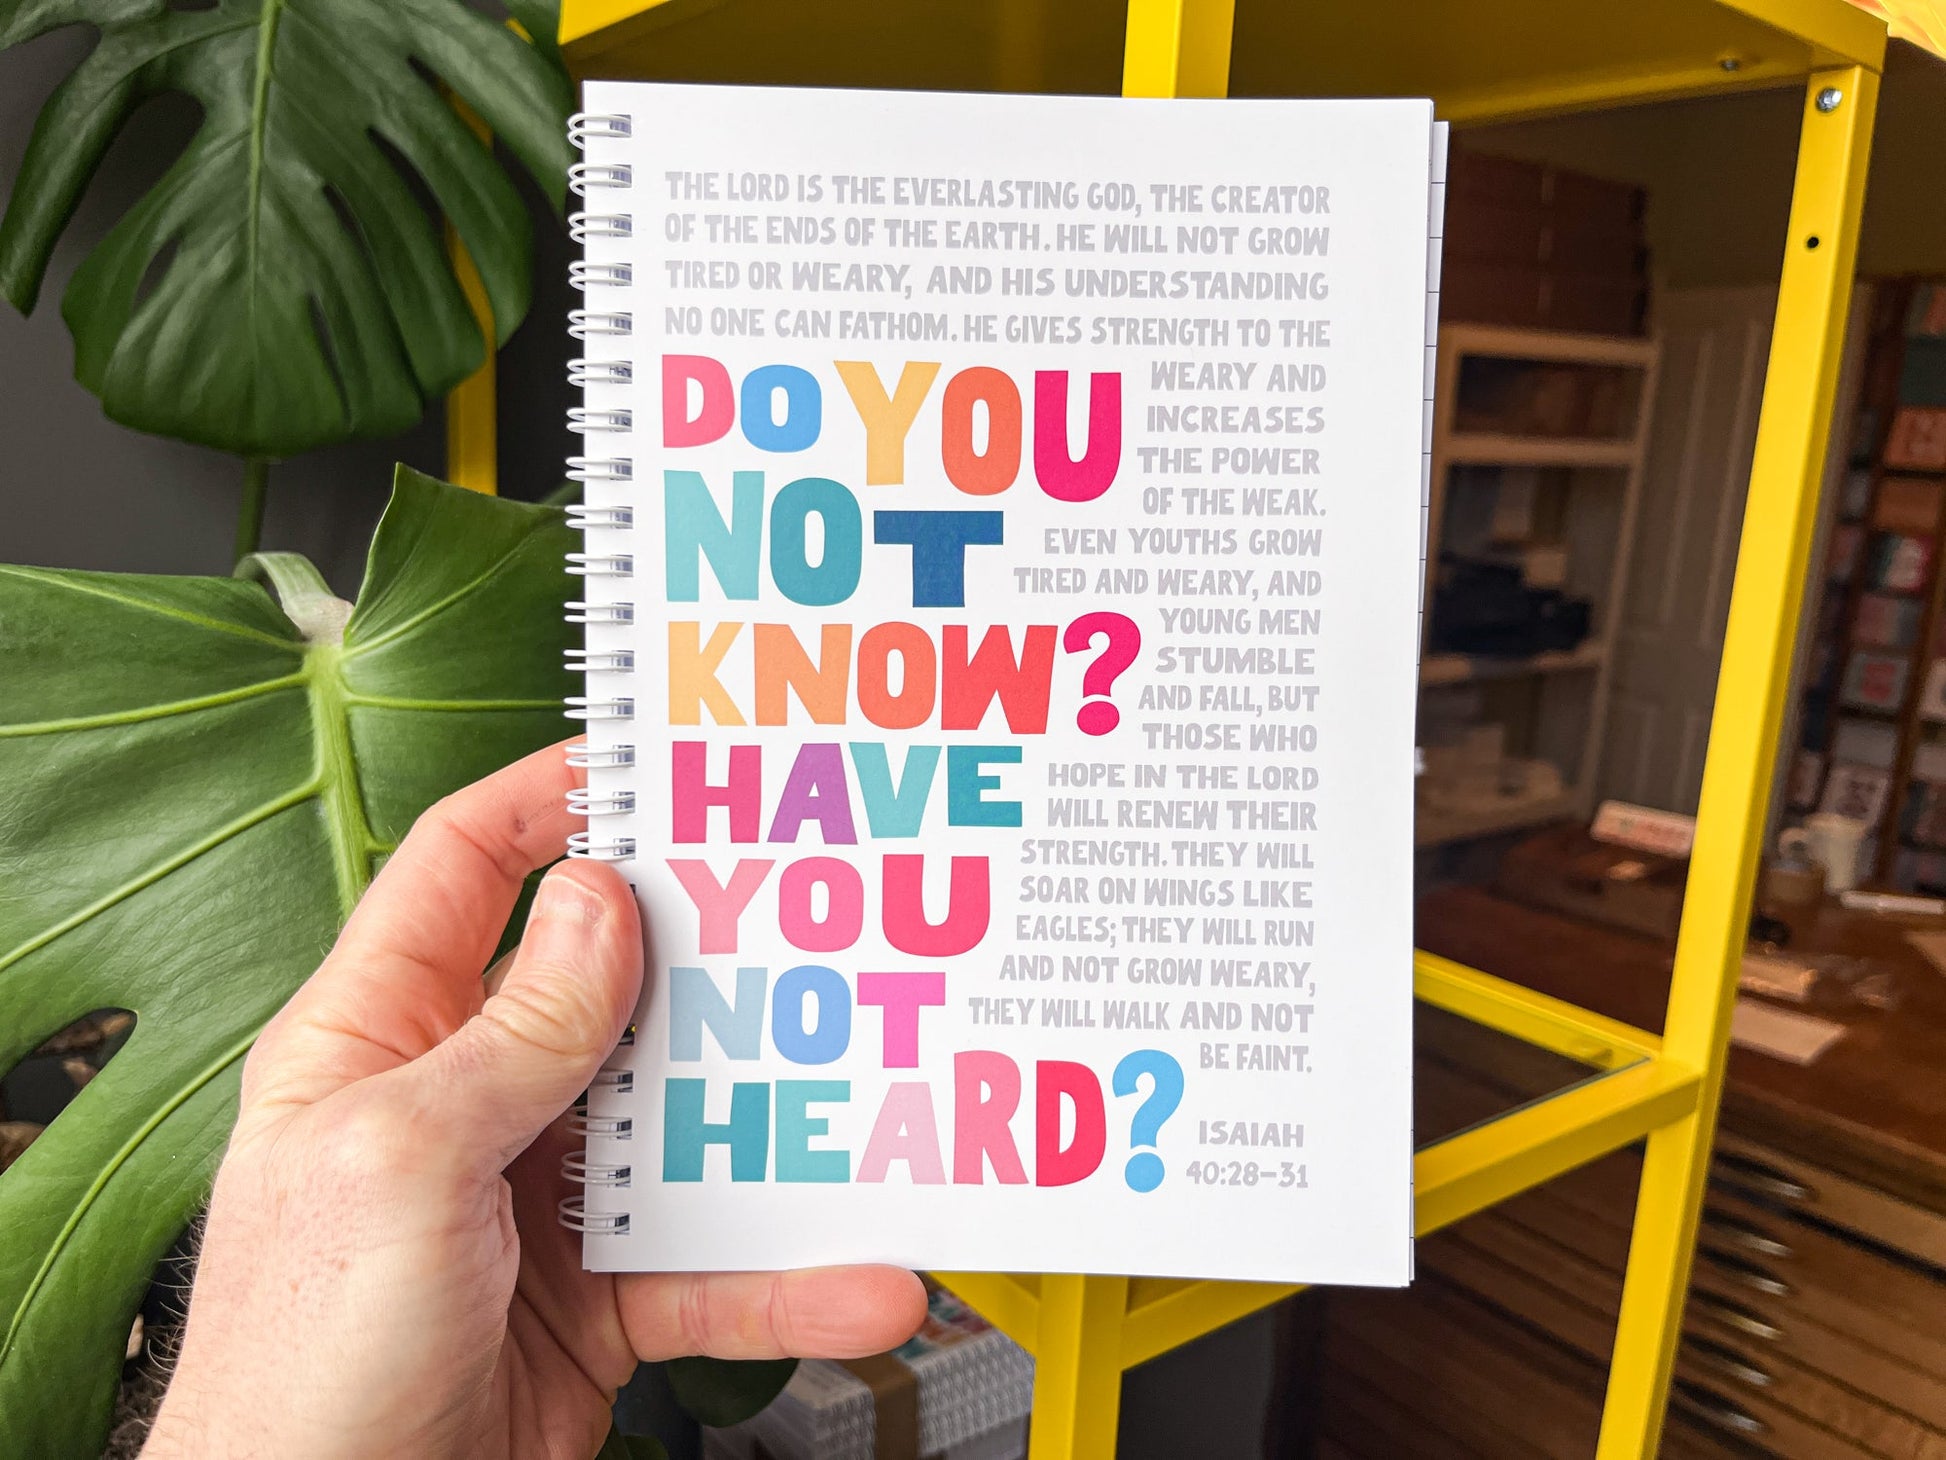 THE LORD IS THE EVERLASTING GOD, THE CREATOR
OF THE ENDS OF THE EARTH. HE WILL NOT GROW
TIRED OR WEARY, AND HIS UNDERSTANDING
NO ONE CAN FATHOM. HE GIVES STRENGTH TO THE
WEARY AND
INCREASES
THE POWER
OF THE WEAK.
EVEN YOUTHS GROW
TIRED AND WEARY, AND
YOUNG MEN
STUMBLE
AND FALL, BUT
THOSE WHO
HOPE IN THE LORD
WILL RENEW THEIR
STRENGTH. THEY WILL
SOAR ON WINGS LIKE
EAGLES; THEY WILL RUN
AND NOT GROW WEARY,
THEY WILL WALK AND NOT
BE FAINT.
DO YOU
NOT
KNOW?
HAVE
YOU
NOT
HEARD?
ISAIAH
40:28–31